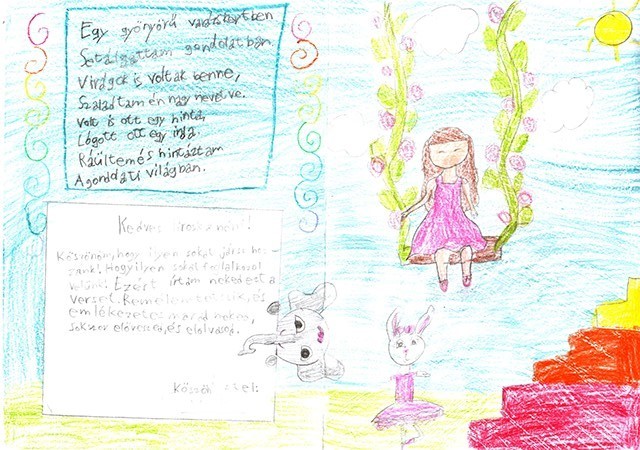 Egy gyönyörű varázskertben
Sétálgattam gondolatban
Virágok is voltak benne,
Szaladtam én nagy nevetve.
Volt is ott egy hinta,
Lógott ott egy inda.
Ráültem és hintáztam
A gondolati világban.
Kedves
Köszönöm, hogy ilyen sokat jársz hoz-
zánk! Hogy ilyen sokat foglalkozol
velünk! Ezért írtam neked ezt a
verset. Remélem tetszik, és
emlékezetes marad neked,
sokszor előveszed, és elolvasod.